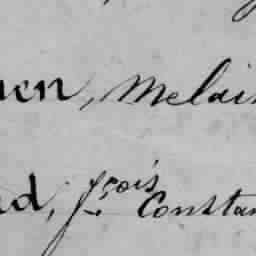 nen, Melai
nd, f.rois Constan